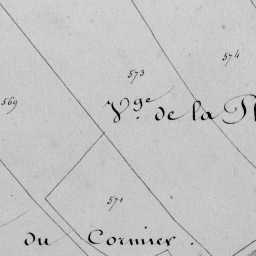 574
573
569
V.ge de la Pl
571
du Cormier.